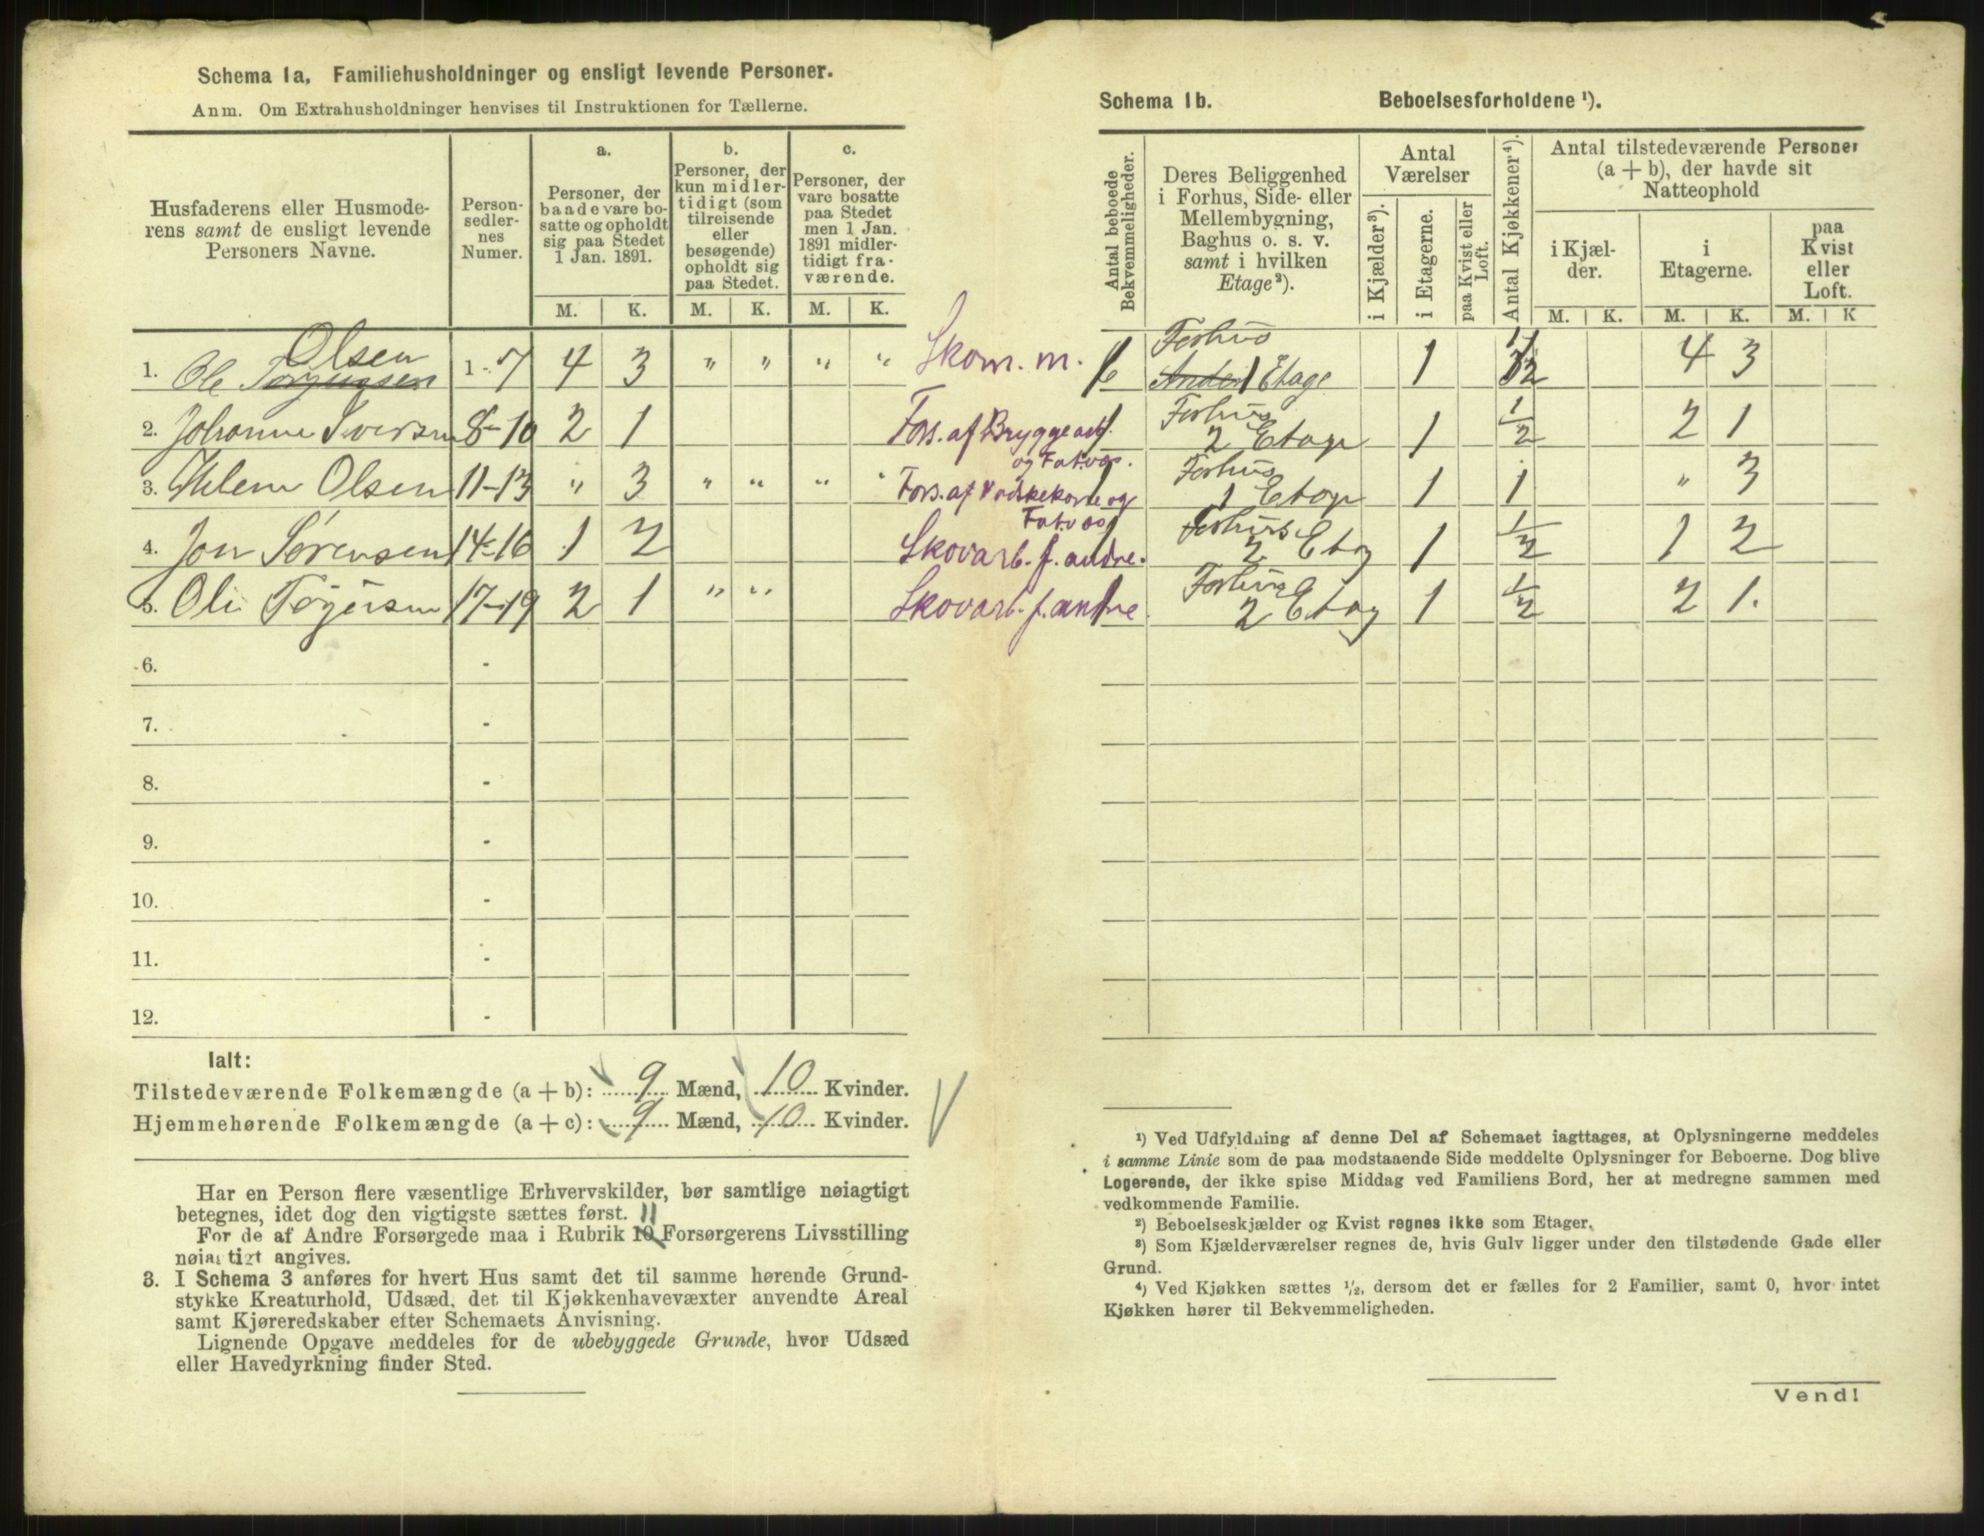 Schema 1a. Familiehusholdninger og ensligt levende Personer.
Anm. Om Extrahusholdninger henvises til Instruktionen for Tællerne.
Husfaderens eller Husmode-
rens samt de ensligt levende
Personers Navne.
Person-
sedler-
nes
Numer.
a.
Personer, der
baade vare bo-
satte og opholdt
sig paa Stedet
1 Jan. 1891.
b.
Personer, der
kun midler-
tidigt (som
tilreisende
eller
besøgende)
opholdt sig
paa Stedet.
c.
Personer, der
vare bosatte
paa Stedet
men 1 Jan.
1891 midler-
tidigt fra-
værende.
M. K. M. K. M. K.
Olsen
1. Ole 1-7 4 3 " " " " Skom. m.
2. Johanne Iversen 8-10 2 1 Fors. af Bryggearb.
og Fatvæs.
3. Helene Olsen 11-13 " 3 " " " " Fors. af Vadskekone og
Fatvæs
4. Jon Sørensen 14-16 1 2 Skovarb. f. andre.
5. Ole Tørgersen 17-19 2 1 " " Skovarb. f. andre.
6. -
7. -
8. -
9. -
10. -
11. -
12. -
Ialt:
Tilstedeværende Folkemængde (a + b): 9 Mænd, 10 Kvinder.
Hjemmehørende Folkemængde (a + c): 9 Mænd, 10 Kvinder.
Har en Person flere væsentlige Erhvervskilder, bør samtlige nøiagtigt
betegnes, idet dog den vigtigste sættes først. 11
For de af Andre Forsørgede maa i Rubrik 10 Forsørgerens Livsstilling
nøiagtigt angives.
3. I Schema 3 anføres for hvert Hus samt det til samme hørende Grund-
stykke Kreaturhold, Udsæd, det til Kjøkkenhavevæxter anvendte Areal
samt Kjøreredskaber efter Schemaets Anvisning.
Lignende Opgave meddeles for de ubebyggede Grunde, hvor Udsæd
eller Havedyrkning finder Sted.
Schema 1b. Beboelsesforholdene ¹).
Antal beboede
Bekvemmeligheder.
Deres Beliggenhed
i Forhus, Side- eller
Mellembygning,
Baghus o. s. v.
samt i hvilken
Etage ²).
Antal
Værelser
i Kjælder ³).
i Etagerne.
paa Kvist eller
Loft.
Antal Kjøkkener ⁴).
Antal tilstedeværende Personer
(a + b), der havde sit
Natteophold
i Kjæl-
der.
i
Etagerne.
paa
Kvist
eller
Loft.
M. K. M. K. M. K
Forhus
1 Etage 1 1/2 4 3
1 Forhus
2 Etage 1 1/2 2 1
1 Forhus
1 Etage 1 1 " 3
1 Forhus
2 Etag 1 1/2 1 2
1 Forhus
2 Etag 1 1/2 2 1.
¹) Ved Udfyldning af denne Del af Schemaet iagttages, at Oplysningerne meddeles
i samme Linie som de paa modstaaende Side meddelte Oplysninger for Beboerne. Dog blive
Logerende, der ikke spise Middag ved Familiens Bord, her at medregne sammen med
vedkommende Familie.
²) Beboelseskjælder og Kvist regnes ikke som Etager.
³) Som Kjælderværelser regnes de, hvis Gulv ligger under den tilstødende Gade eller
Grund.
⁴) Ved Kjøkken sættes ½, dersom det er fælles for 2 Familier, samt 0, hvor intet
Kjøkken hører til Bekvemmeligheden.
Vend!